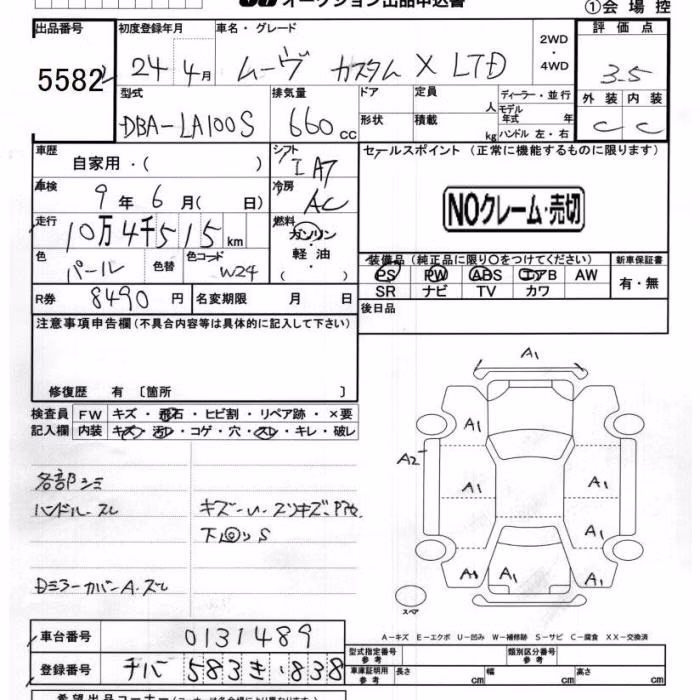 オークション出品申込書
①会場控
出品番号 初度登録年月 車名・グレード 2WD ・ 4WD 評価点
5582 24 4月 ムーヴ カスタム X LTD 3.5
型式 排気量 ドア 定員 人 ディーラー・並行 外装 内装
DBA-LA100S 660cc 形状 積載 kg モデル年式 年 C C
ハンドル 左・右
車歴 自家用・( ) シフト IAT セールスポイント (正常に機能するものに限ります)
車検 9年 6月( 日) 冷房 AC NOクレーム・売切
走行 10万4千515km 燃料 ガソリン・軽油・( )
色 パール 色替 色コード W24
装備品 (純正品に限り〇をつけてください) 新車保証書
PS PW ABS エアB AW 有・無
SR ナビ TV カワ
R券 8490円 名変期限 月 日 後日品
注意事項申告欄 (不具合内容等は具体的に記入して下さい)
修復歴 有 〔箇所 〕
検査員 FW キズ・飛石・ヒビ割・リペア跡・×要
記入欄 内装 キズ・汚レ・コゲ・穴・スレ・キレ・破レ
各部シミ
ハンドルスレ
キズ
Dミラーカバー A・スレ
A1
A2
A1 A1
A1
A1 A1 A1
スペア
A-キズ E-エクボ U-凹み W-補修跡 S-サビ C-腐食 XX-交換済
車台番号 0131489 型式指定番号 参考 類別区分番号 参考
登録番号 チバ 583 き・838 車庫証明用 参考 長さ cm 幅 cm 高さ cm
希望出品コーナー